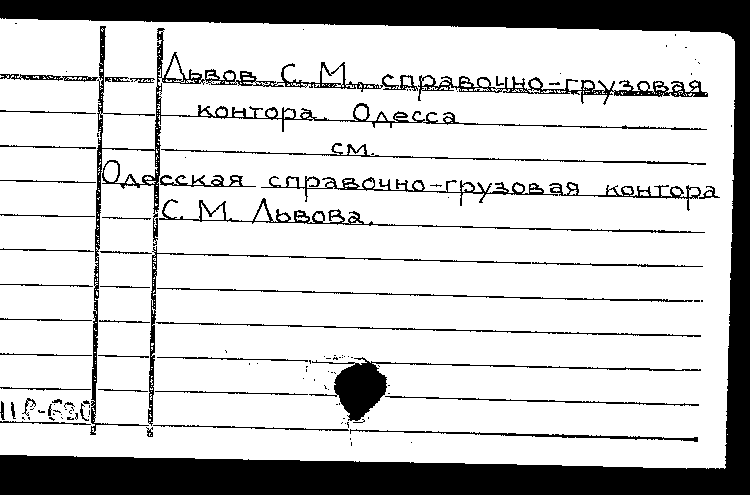 Львов С. М., справочно-грузовая
контора. Одесса
см.
Одесская справочно-грузовая контора
С. М. Львова.